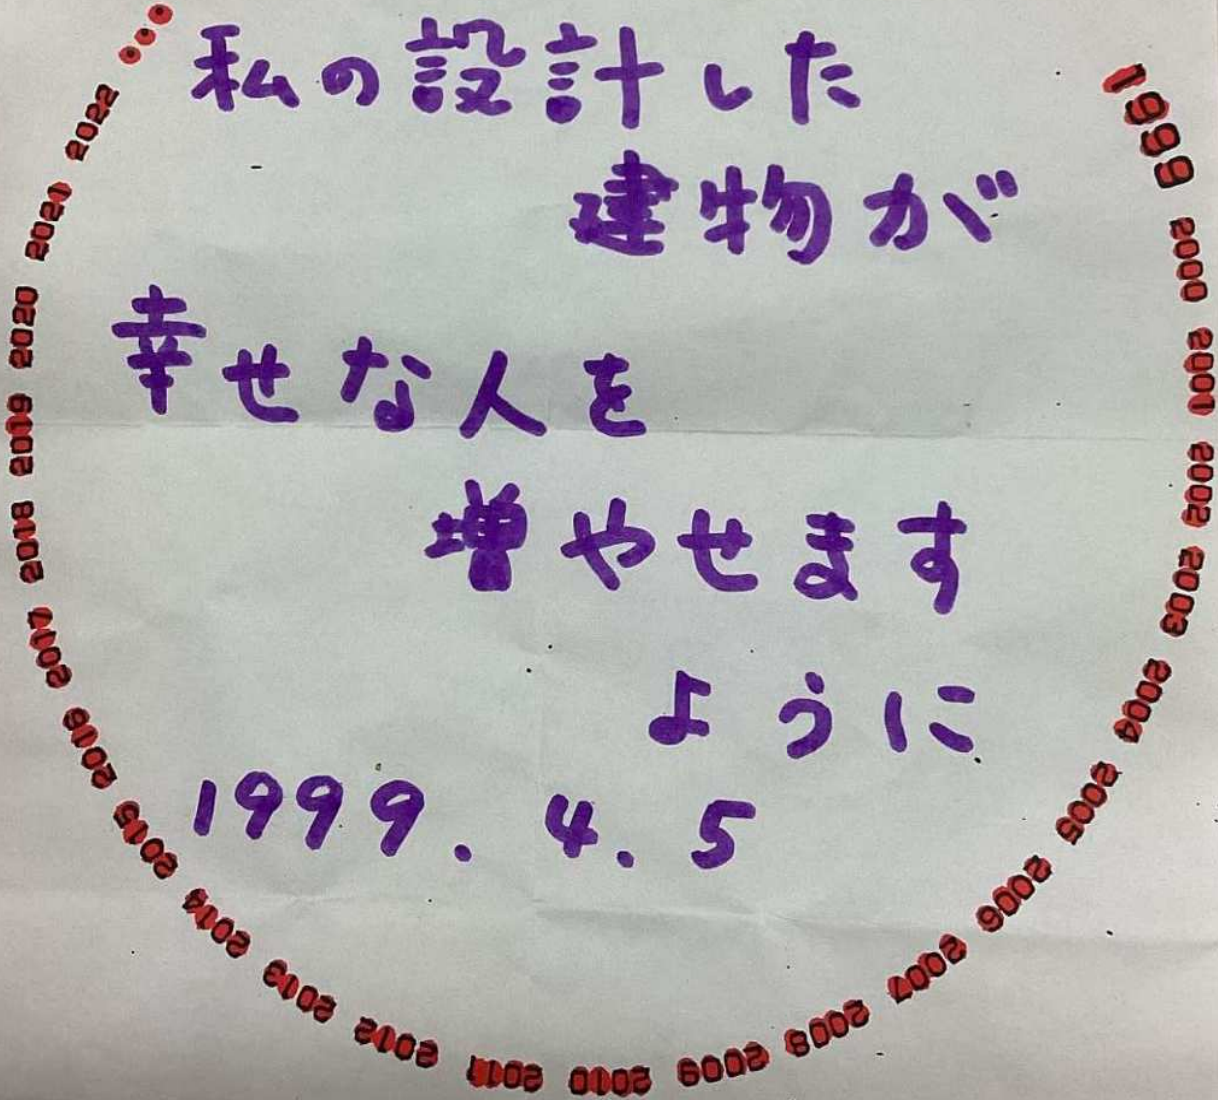 私の設計した
建物が
幸せな人を
増やせます
ように
1999.4.5
1999 2000 2001 2002 2003 2004 2005 2006 2007 2008 2009 2010 2011 2012 2013 2014 2015 2016 2017 2018 2019 2020 2021 2022 •••